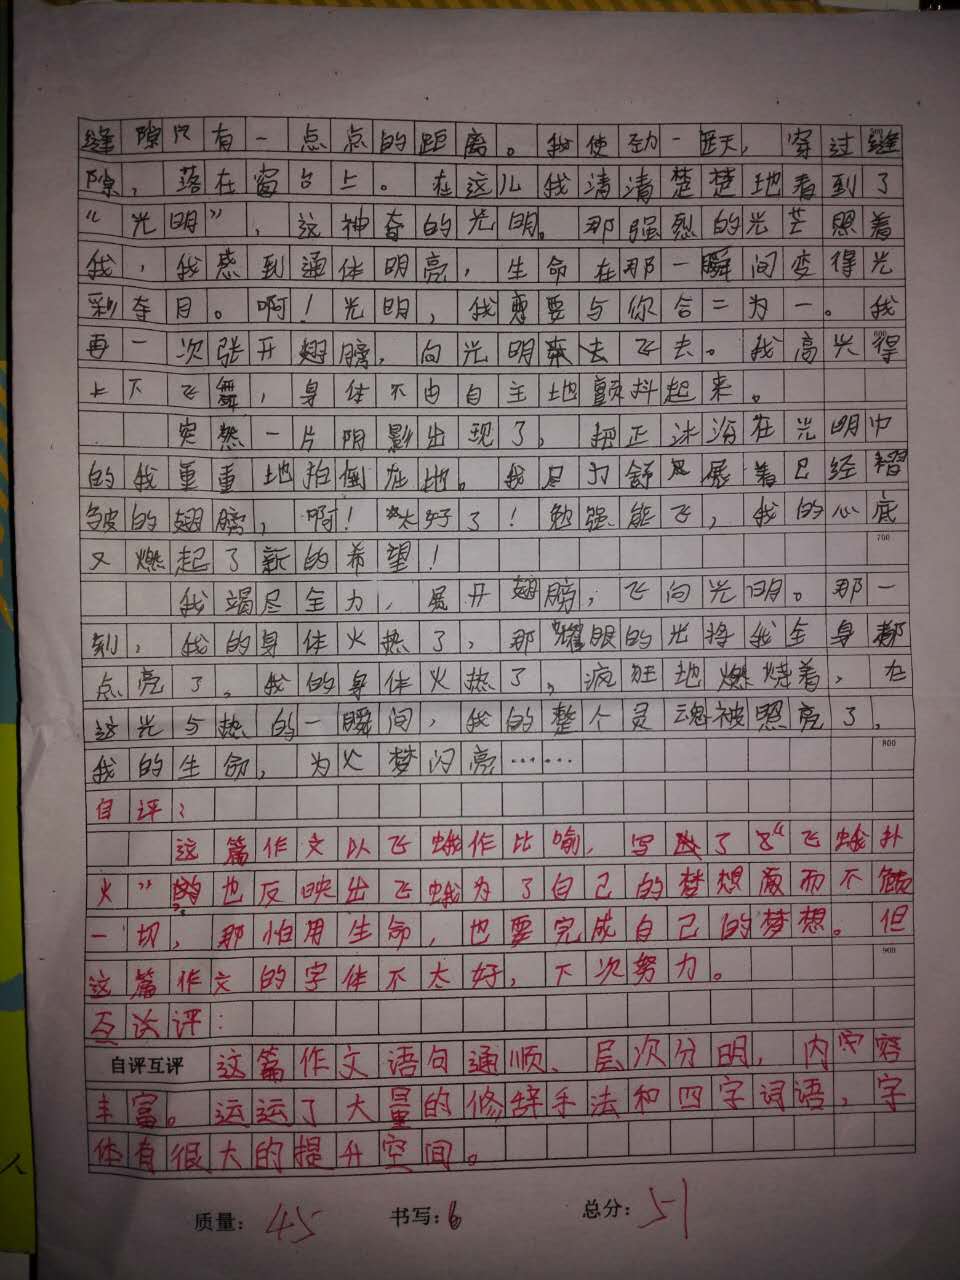 缝隙只有一点点的距离。我使劲一跃，穿过缝
隙，落在窗台上。在这儿我清清楚楚地看到了
“光明”，这神奇的光明。那强烈的光芒照着
我，我感到通体明亮，生命在那一瞬间变得光
彩夺目。啊！光明，我要与你合二为一。我
再一次张开翅膀，向光明飞去。我高兴得
上下飞舞，身体不由自主地颤抖起来。
突然一片阴影出现了，把正沐浴在光明中
的我重重地拍倒在地。我尽力舒展着已经褶
皱的翅膀，啊！太好了！勉强能飞，我的心底
700
又燃起了新的希望！
我竭尽全力，展开翅膀，飞向光明。那一
刻，我的身体火热了，那耀眼的光将我全身都
点亮了，我的身体火热了，疯狂地燃烧着，在
这光与热的一瞬间，我的整个灵魂被照亮了，
800
我的生命，为火梦闪亮……
自评：
这篇作文以飞蛾作比喻，写了飞蛾扑
火”也反映出飞蛾为了自己的梦想而不顾
一切，那怕用生命，也要完成自己的梦想。但
900
这篇作文的字体不太好，下次努力。
互评：
自评互评 这篇作文语句通顺、层次分明，内容
丰富。运运了大量的修辞手法和四字词语，字
体有很大的提升空间。
质量：45 书写：6 总分：51
人